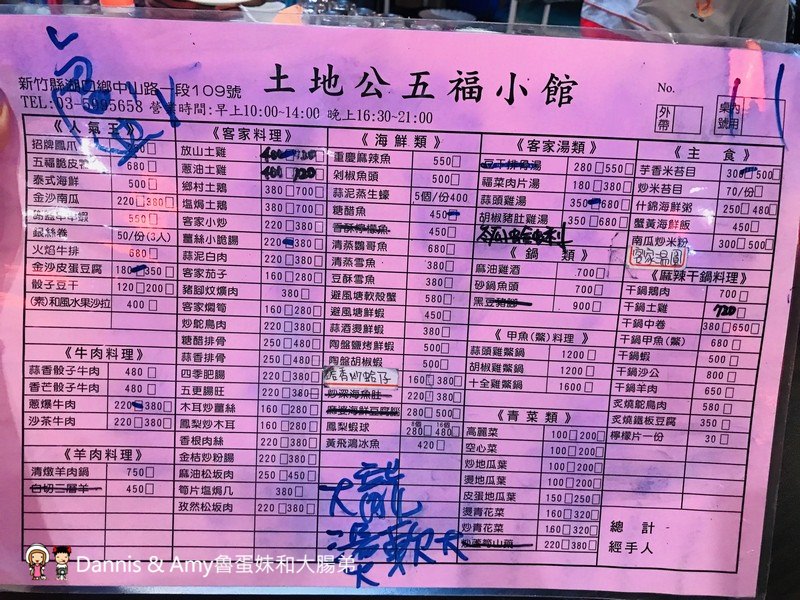 土地公五福小館
新竹縣湖口鄉中山路一段109號
TEL:03-5995658 營業時間:早上10:00~14:00 晚上16:30~21:00
No.
外帶
桌號
內用
《人氣王》
招牌鳳爪
五福脆皮 680
泰式海鮮 500
金沙南瓜 220 380
550
銀絲卷 50/份(3人)
火焰牛排 680
金沙皮蛋豆腐 180 350
骰子豆干 120 200
(素)和風水果沙拉 400
《牛肉料理》
蒜香骰子牛肉 480
香芒骰子牛肉 480
蔥爆牛肉 220 380
沙茶牛肉 220 380
《羊肉料理》
清燉羊肉鍋 750
白切三層羊 450
《客家料理》
放山土雞 400 720
蔥油土雞 400 720
鄉村土鵝 380 700
塩焗土鵝 380 700
客家小炒 220 380
薑絲小脆腸 220 380
蒜泥白肉 220 380
客家茄子 160 280
豬腳炆爌肉 380
客家燜筍 160 280
炒鴕鳥肉 220 380
糖醋排骨 250 480
蒜香排骨 250 480
四季肥腸 220 380
五更腸旺 220 380
木耳炒薑絲 160 280
鳳梨炒木耳 160 280
香根肉絲 220 380
金桔炒粉腸 220 380
麻油松坂肉 250 450
筍片塩焗几 380
孜然松坂肉 220 380
《海鮮類》
重慶麻辣魚 550
剁椒魚頭 500
蒜泥蒸生蠔 5個/份400
糖醋魚 450
香酥檸檬魚 450
清蒸鸚哥魚 680
清蒸雪魚 380
豆酥雪魚 380
避風塘軟殼蟹 580
避風塘鮮蝦 380
蒜酒燙鮮蝦 380
陶盤鹽烤鮮蝦 500
陶盤胡椒蝦 500
塔香炒蛤仔 160 380
炒深海魚肚 220 380
麻婆海鮮豆腐煲 280 500
鳳梨蝦球 8個 280 16個 480
黃飛鴻冰魚 420
大龍
燙軟大
《客家湯類》
280 550
福菜肉片湯 180 380
蒜頭雞湯 350 680
胡椒豬肚雞湯 350 680
《鍋類》
麻油雞酒 700
砂鍋魚頭 700
黑豆豬腳 900
《甲魚(鱉)料理》
蒜頭雞鱉鍋 1200
胡椒雞鱉鍋 1200
十全雞鱉鍋 1600
《青菜類》
高麗菜 100 200
空心菜 100 200
炒地瓜葉 100 200
燙地瓜葉 100 200
皮蛋地瓜葉 150 250
燙青花菜 160 320
炒青花菜 160 320
炒蘆筍山藥 220 380
《主食》
芋香米苔目 300 500
炒米苔目 70/份
什錦海鮮粥 250 480
蟹黃海鮮飯 450
南瓜炒米粉 300 500
客家湯圓
《麻辣干鍋料理》
干鍋鵝肉 700
干鍋土雞 720
干鍋中卷 380 650
干鍋甲魚(鱉) 680
干鍋蝦 500
干鍋沙公 800
干鍋羊肉 650
炙燒鴕鳥肉 580
炙燒鐵板豆腐 350
檸檬片一份 30
總計
經手人
Dannis & Amy魯蛋妹和大腸弟